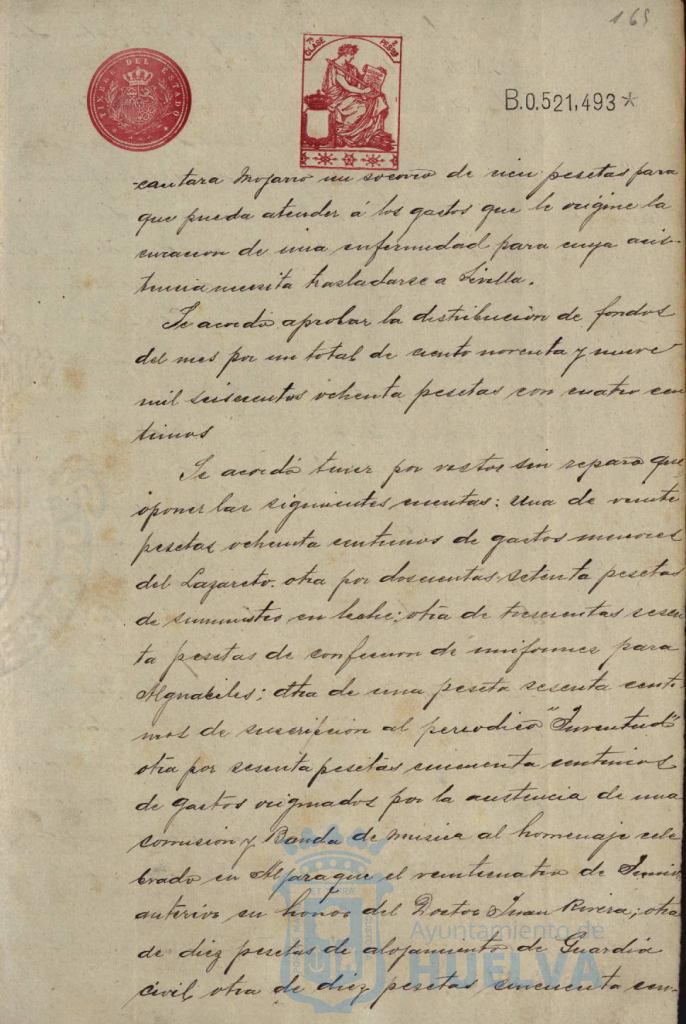 165
TIMBRE DEL ESTADO
7ª CLASE PESETAS
B.0.521,493*
cantara Mojarro un socorro de cien pesetas para
que pueda atender á los gastos que le origine la
curacion de una enfermedad para cuya asis-
tencia necesita trasladarse a Sevilla.
Se acordó aprobar la distribución de fondos
del mes por un total de ciento noventa y nueve
mil seiscientos ochenta pesetas con cuatro cen
timos
Se acordó tener por vistos sin reparo que
oponer las siguientes cuentas: una de veinte
pesetas ochenta centimos de gastos menores
del Lazareto. otra por doscientas setenta pesetas
de suministro en leche; otra de trescientas sesen
ta pesetas de confeccion de uniformes para
Alguaciles; otra de una peseta sesenta centi-
mos de suscripción al periodico "Juventud"
otra por sesenta pesetas cincuenta centimos
de gastos originados por la asistencia de una
comision y Banda de musica al homenaje cele
brado en Aljaraque el veinticuatro de Junio
anterior en honor del Doctor Juan Rivera; otra
de diez pesetas de alojamiento de Guardia
civil otra de diez pesetas cincuenta cen-
Ayuntamiento de
HUELVA